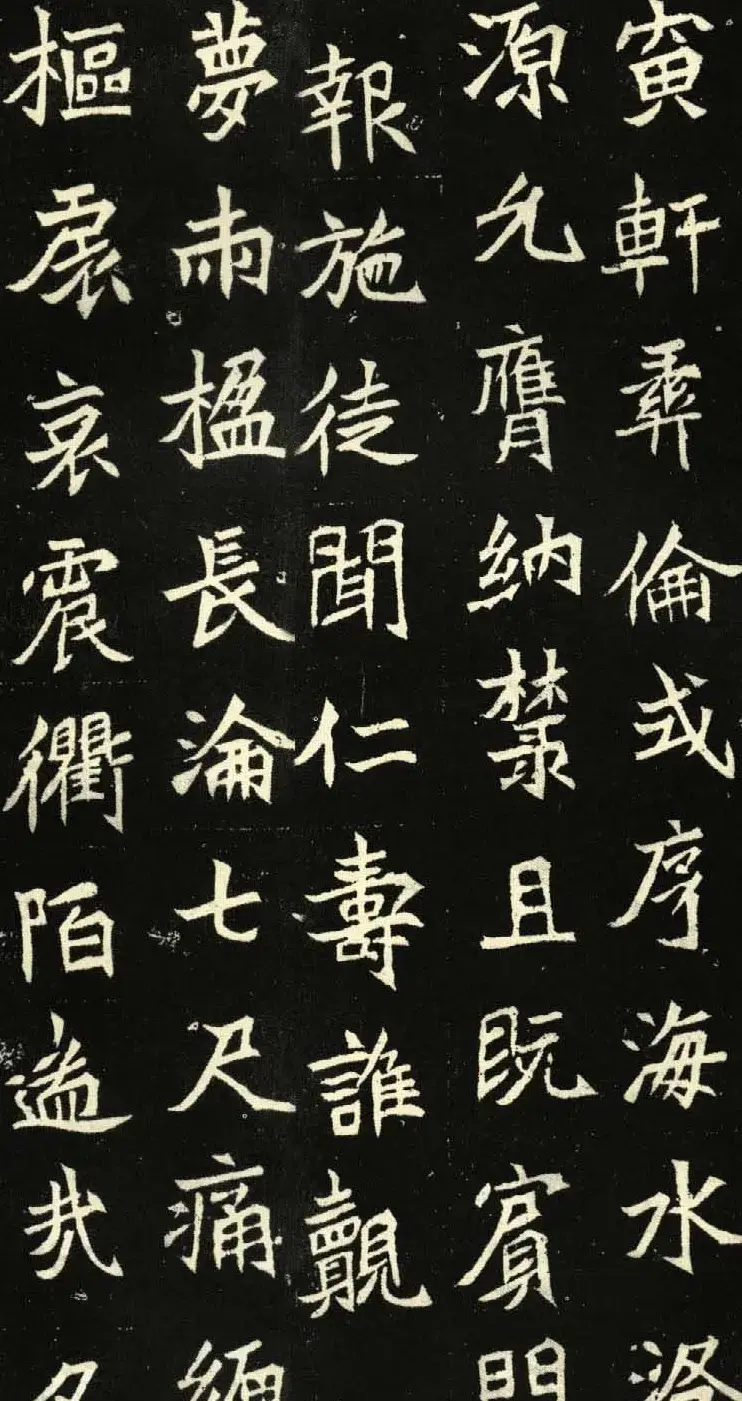 寅軒彝倫式序海水洛
源允膺納麓且既賓門
報施徒聞仁壽誰覿
夢兩楹長淪七尺痛緬
樞哀震衢陌遄哉